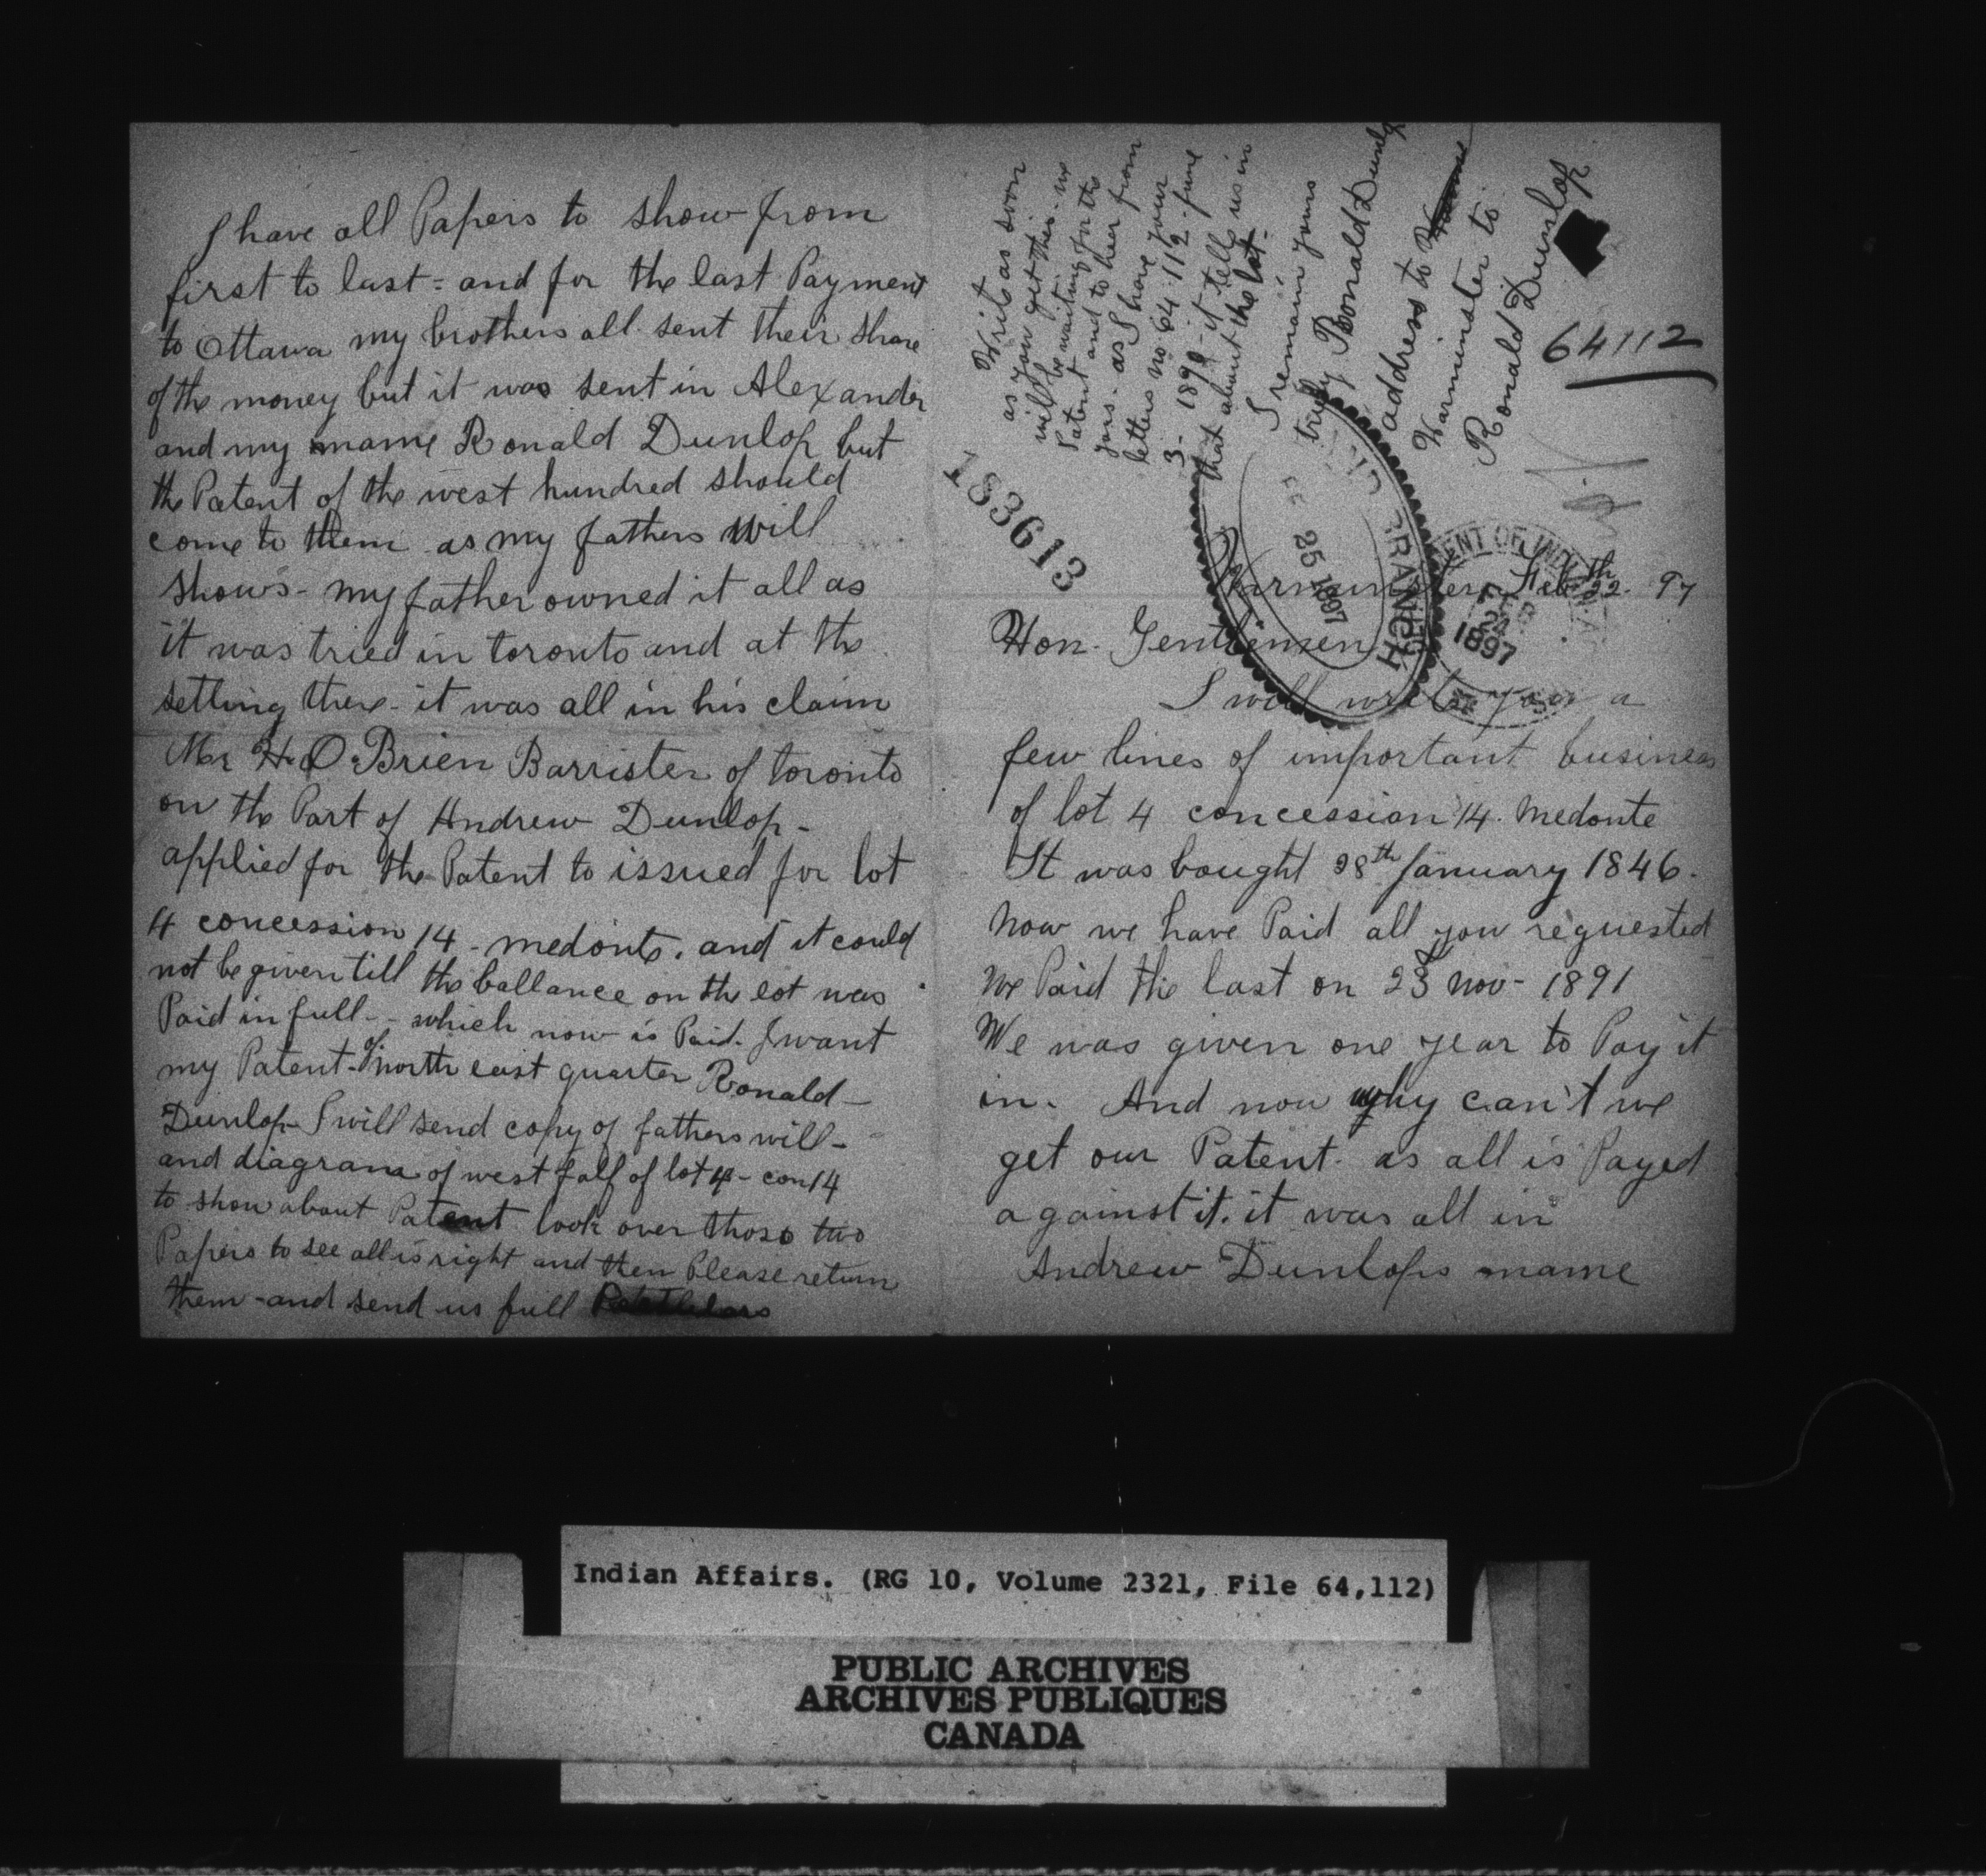 I have all Papers to show from
first to last - and for the last Payment
to Ottawa my brothers all sent their share
of the money but it was sent in Alexander
and my name Ronald Dunlop but
the Patent of the west hundred should
come to them as my fathers will
shows - my father owned it all as
it was tried in toronto and at the
setling there - it was all in his claim
Mr H. O'Brien Barrister of toronto
on the Part of Andrew Dunlop -
applied for the Patent to issued for lot
4 concession 14 - medonte. and it could
not be given till the ballance on the lot was
Paid in full - - which now is Paid. I want
my Patent - of north east quarter Ronald -
Dunlop - I will send copy of fathers will -
and diagram of west falf of lot 4 - con 14
to show about Patent look over those two
Papers to see all is right and then Please return
them - and send us full
Write as soon
as you get this - we
will be waiting for the
Patent and to hear from
you - as I have your
letters no 64.112 - June
3 - it tells us in
that about the lot -
I remain yours
truly Ronald Dunlop
address to
Warminster to
Ronald Dunlop
64112
183613
BRANCH
25 1897
FEB
24
1897
Warminster Feb 22th 97
Hon. Gentlemen
I will write you a
few lines of important business
of lot 4 concession 14. Medonte
It was bought 28th January 1846.
Now we have Paid all you requested
we Paid the last on 23 Nov - 1891
We was given one year to Pay it
in. And now why can't we
get our Patent. as all is Payed
against it. it was all in
Andrew Dunlops name
Indian Affairs. (RG 10, Volume 2321, File 64,112)
PUBLIC ARCHIVES
ARCHIVES PUBLIQUES
CANADA